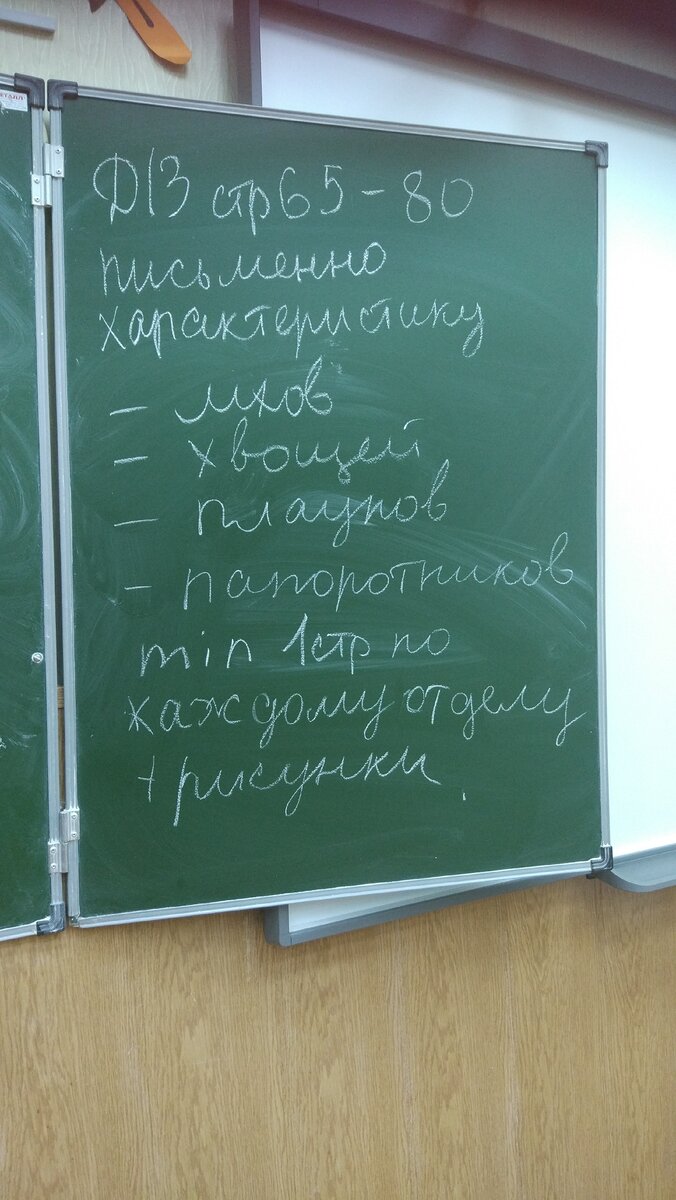 Д/З стр 65-80
письменно
характеристику
- мхов
- хвощей
- плаунов
- папоротников
min 1стр по
каждому отделу
+ рисунки.